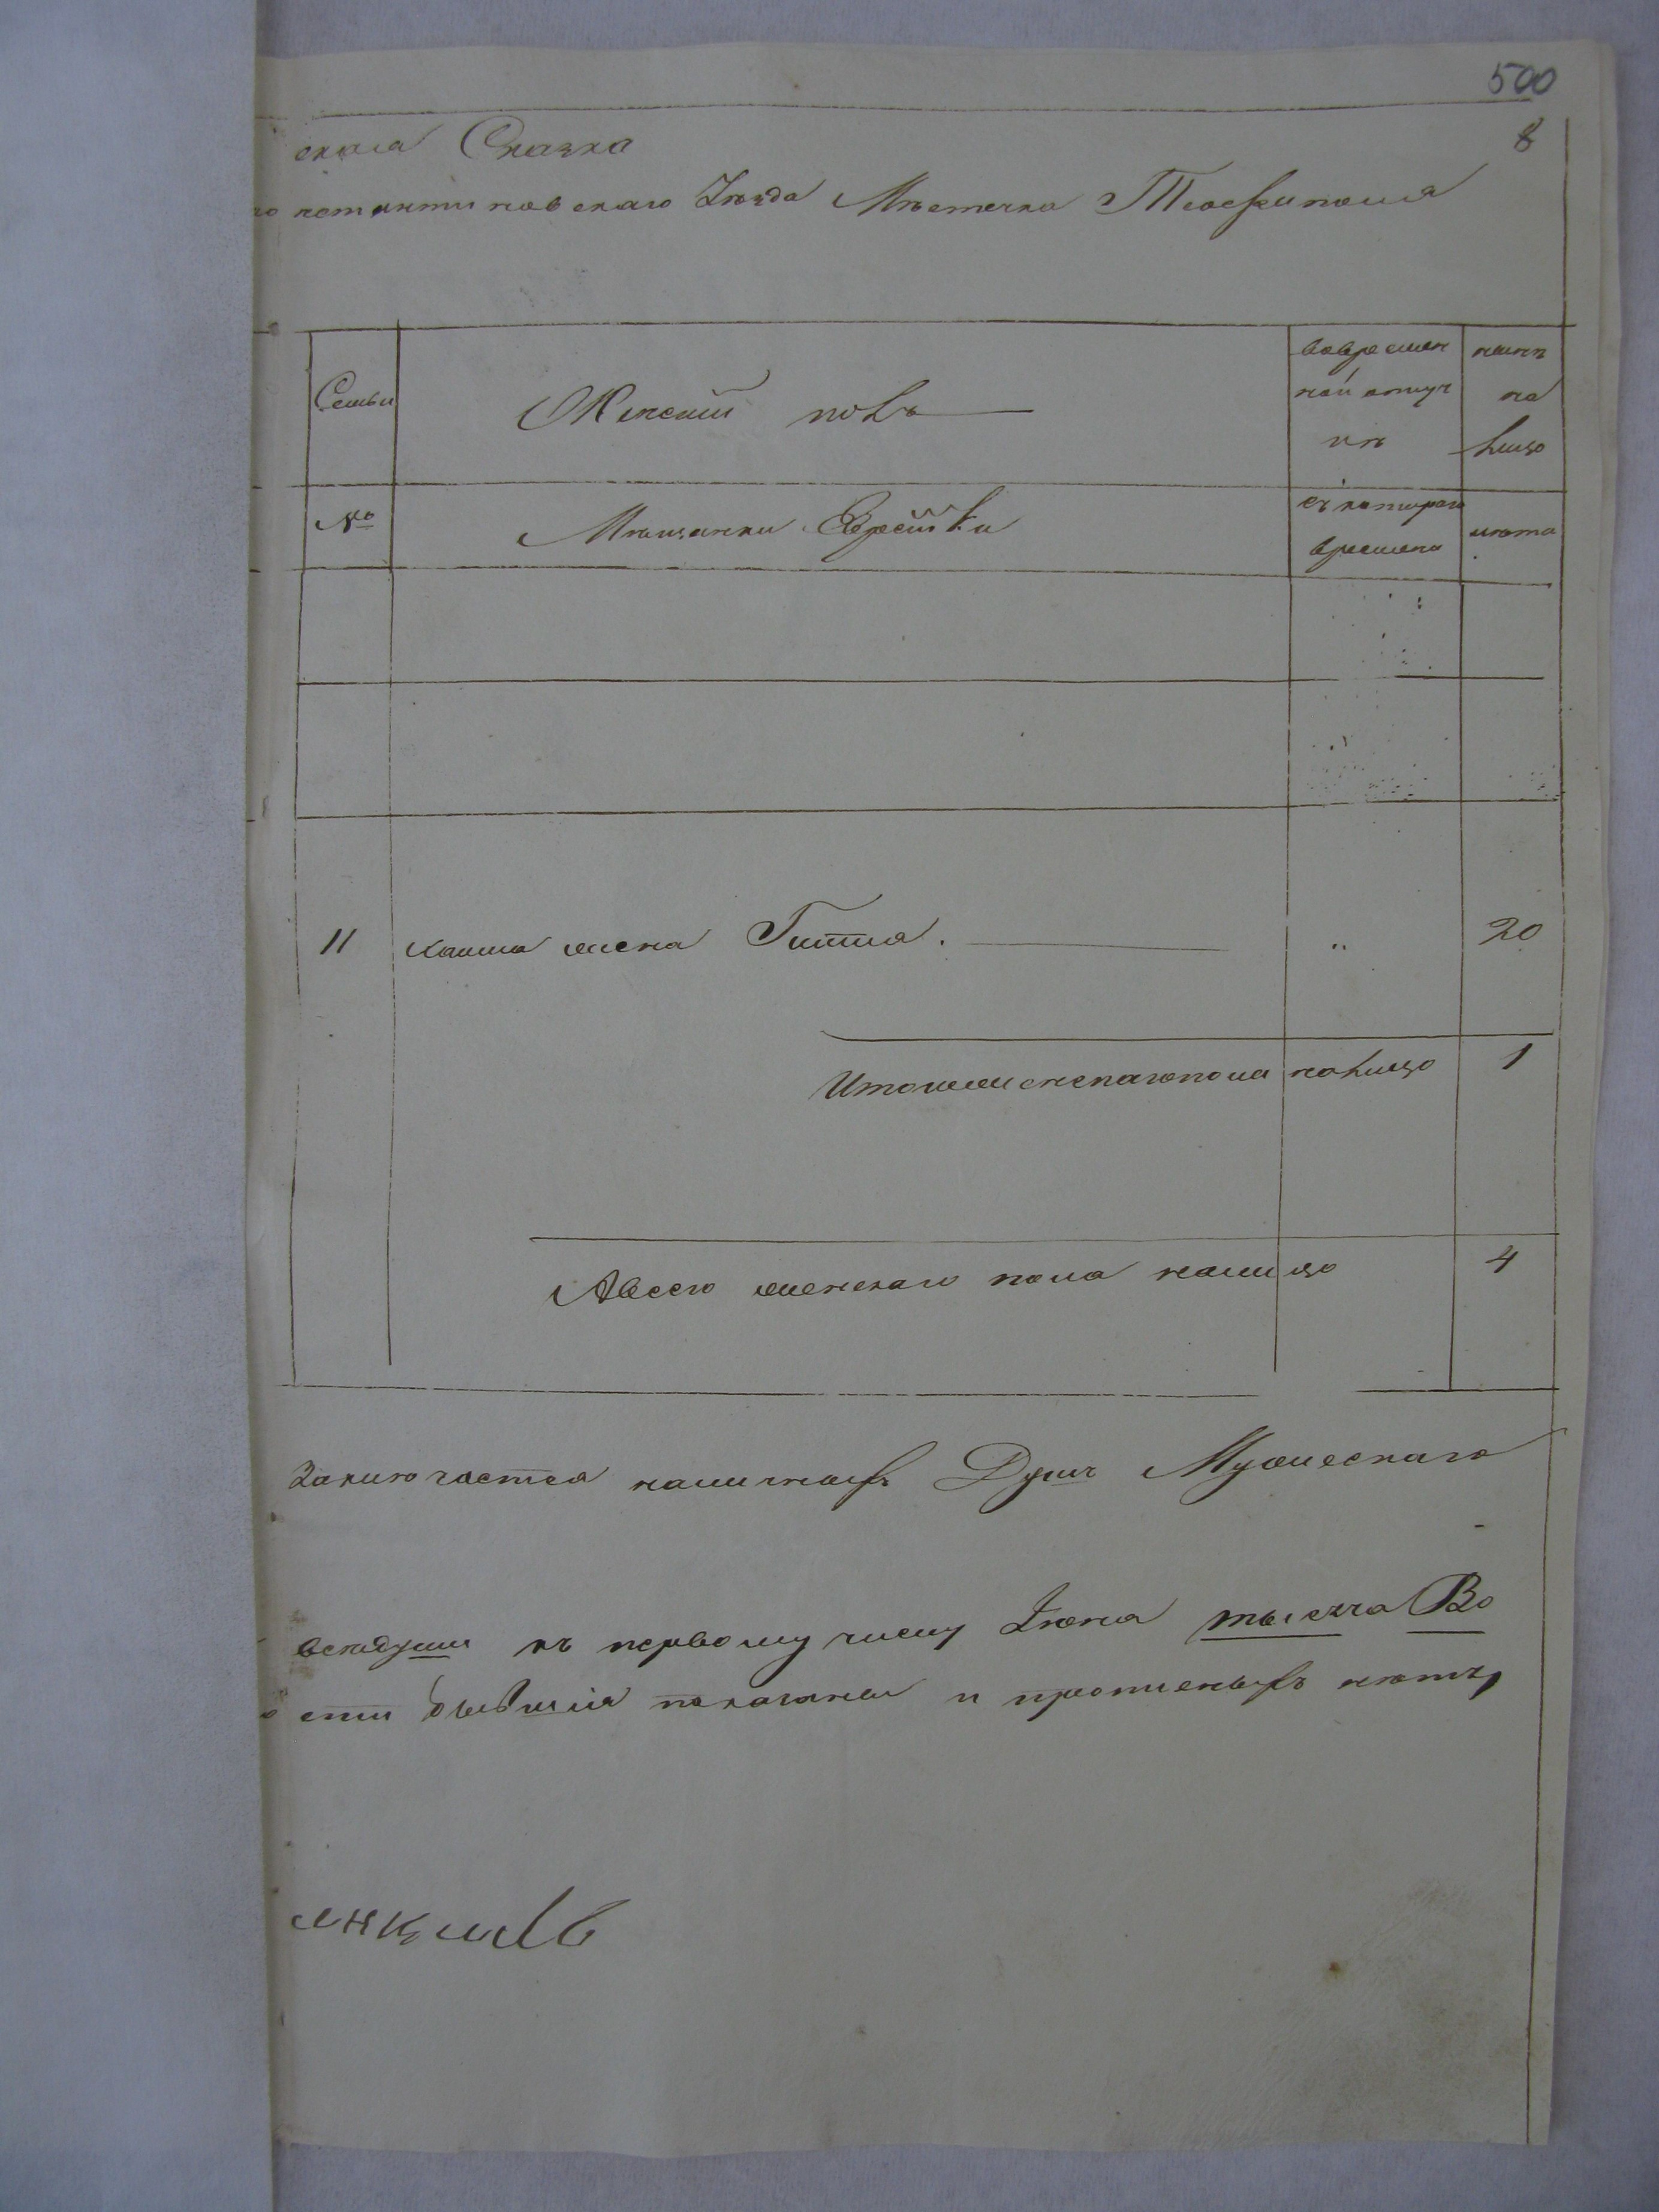 500
8
ская Сказка
константиновскаго Уѣзда Мѣстечка Теофиполя
Семьи
Женскій полъ
вовремен
ной отлуч
кѣ
нынѣ
на
лицо
№
Мѣщанки Еврейки
съ котораго
времени
лѣта
11 Хаима жена Гитля. „ 20
Итого женскаго пола на лицо 1
Авсего женскаго пола налицо 4
Заключается наличныхъ Душъ Мужескаго
вскадуши къ первому числу Іюня тысеча Во
сти бывшія показаны и прописныхъ нѣтъ,